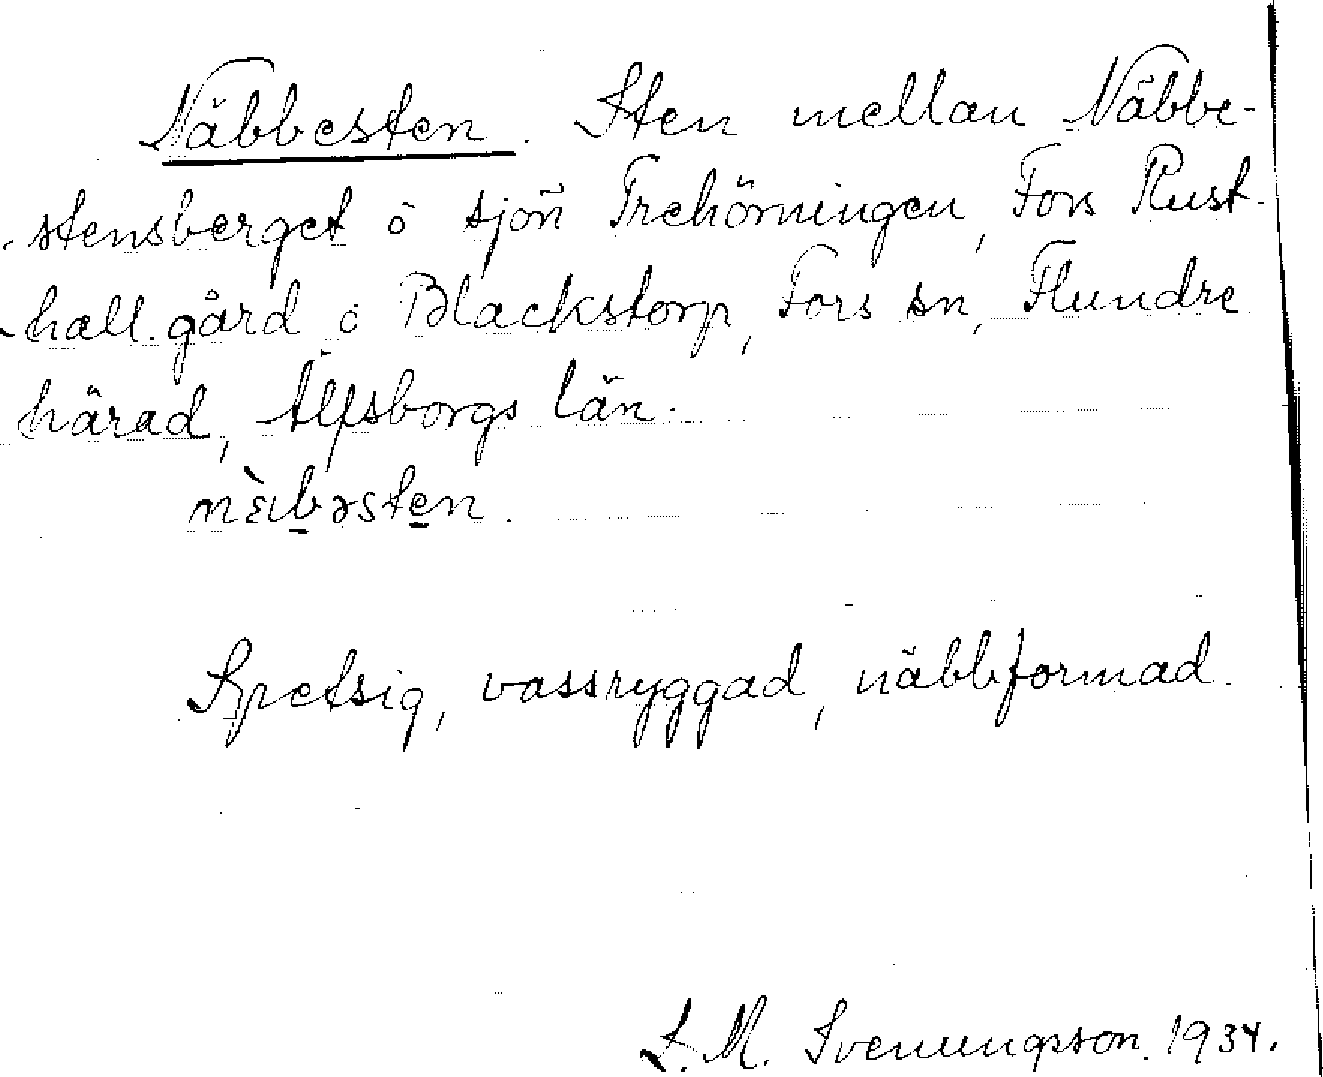 Näbbesten. Sten mellan Näbbe-
stensberget o sjön Trehörningen, Fors Rust-
hall. gård o Blackstorp, Fors sn, Flundre
härad, Älfsborgs län.
nɛ̀ibəsten.
Spetsig, vassryggad, näbbformad.
L.M. Svenungsson. 1934.